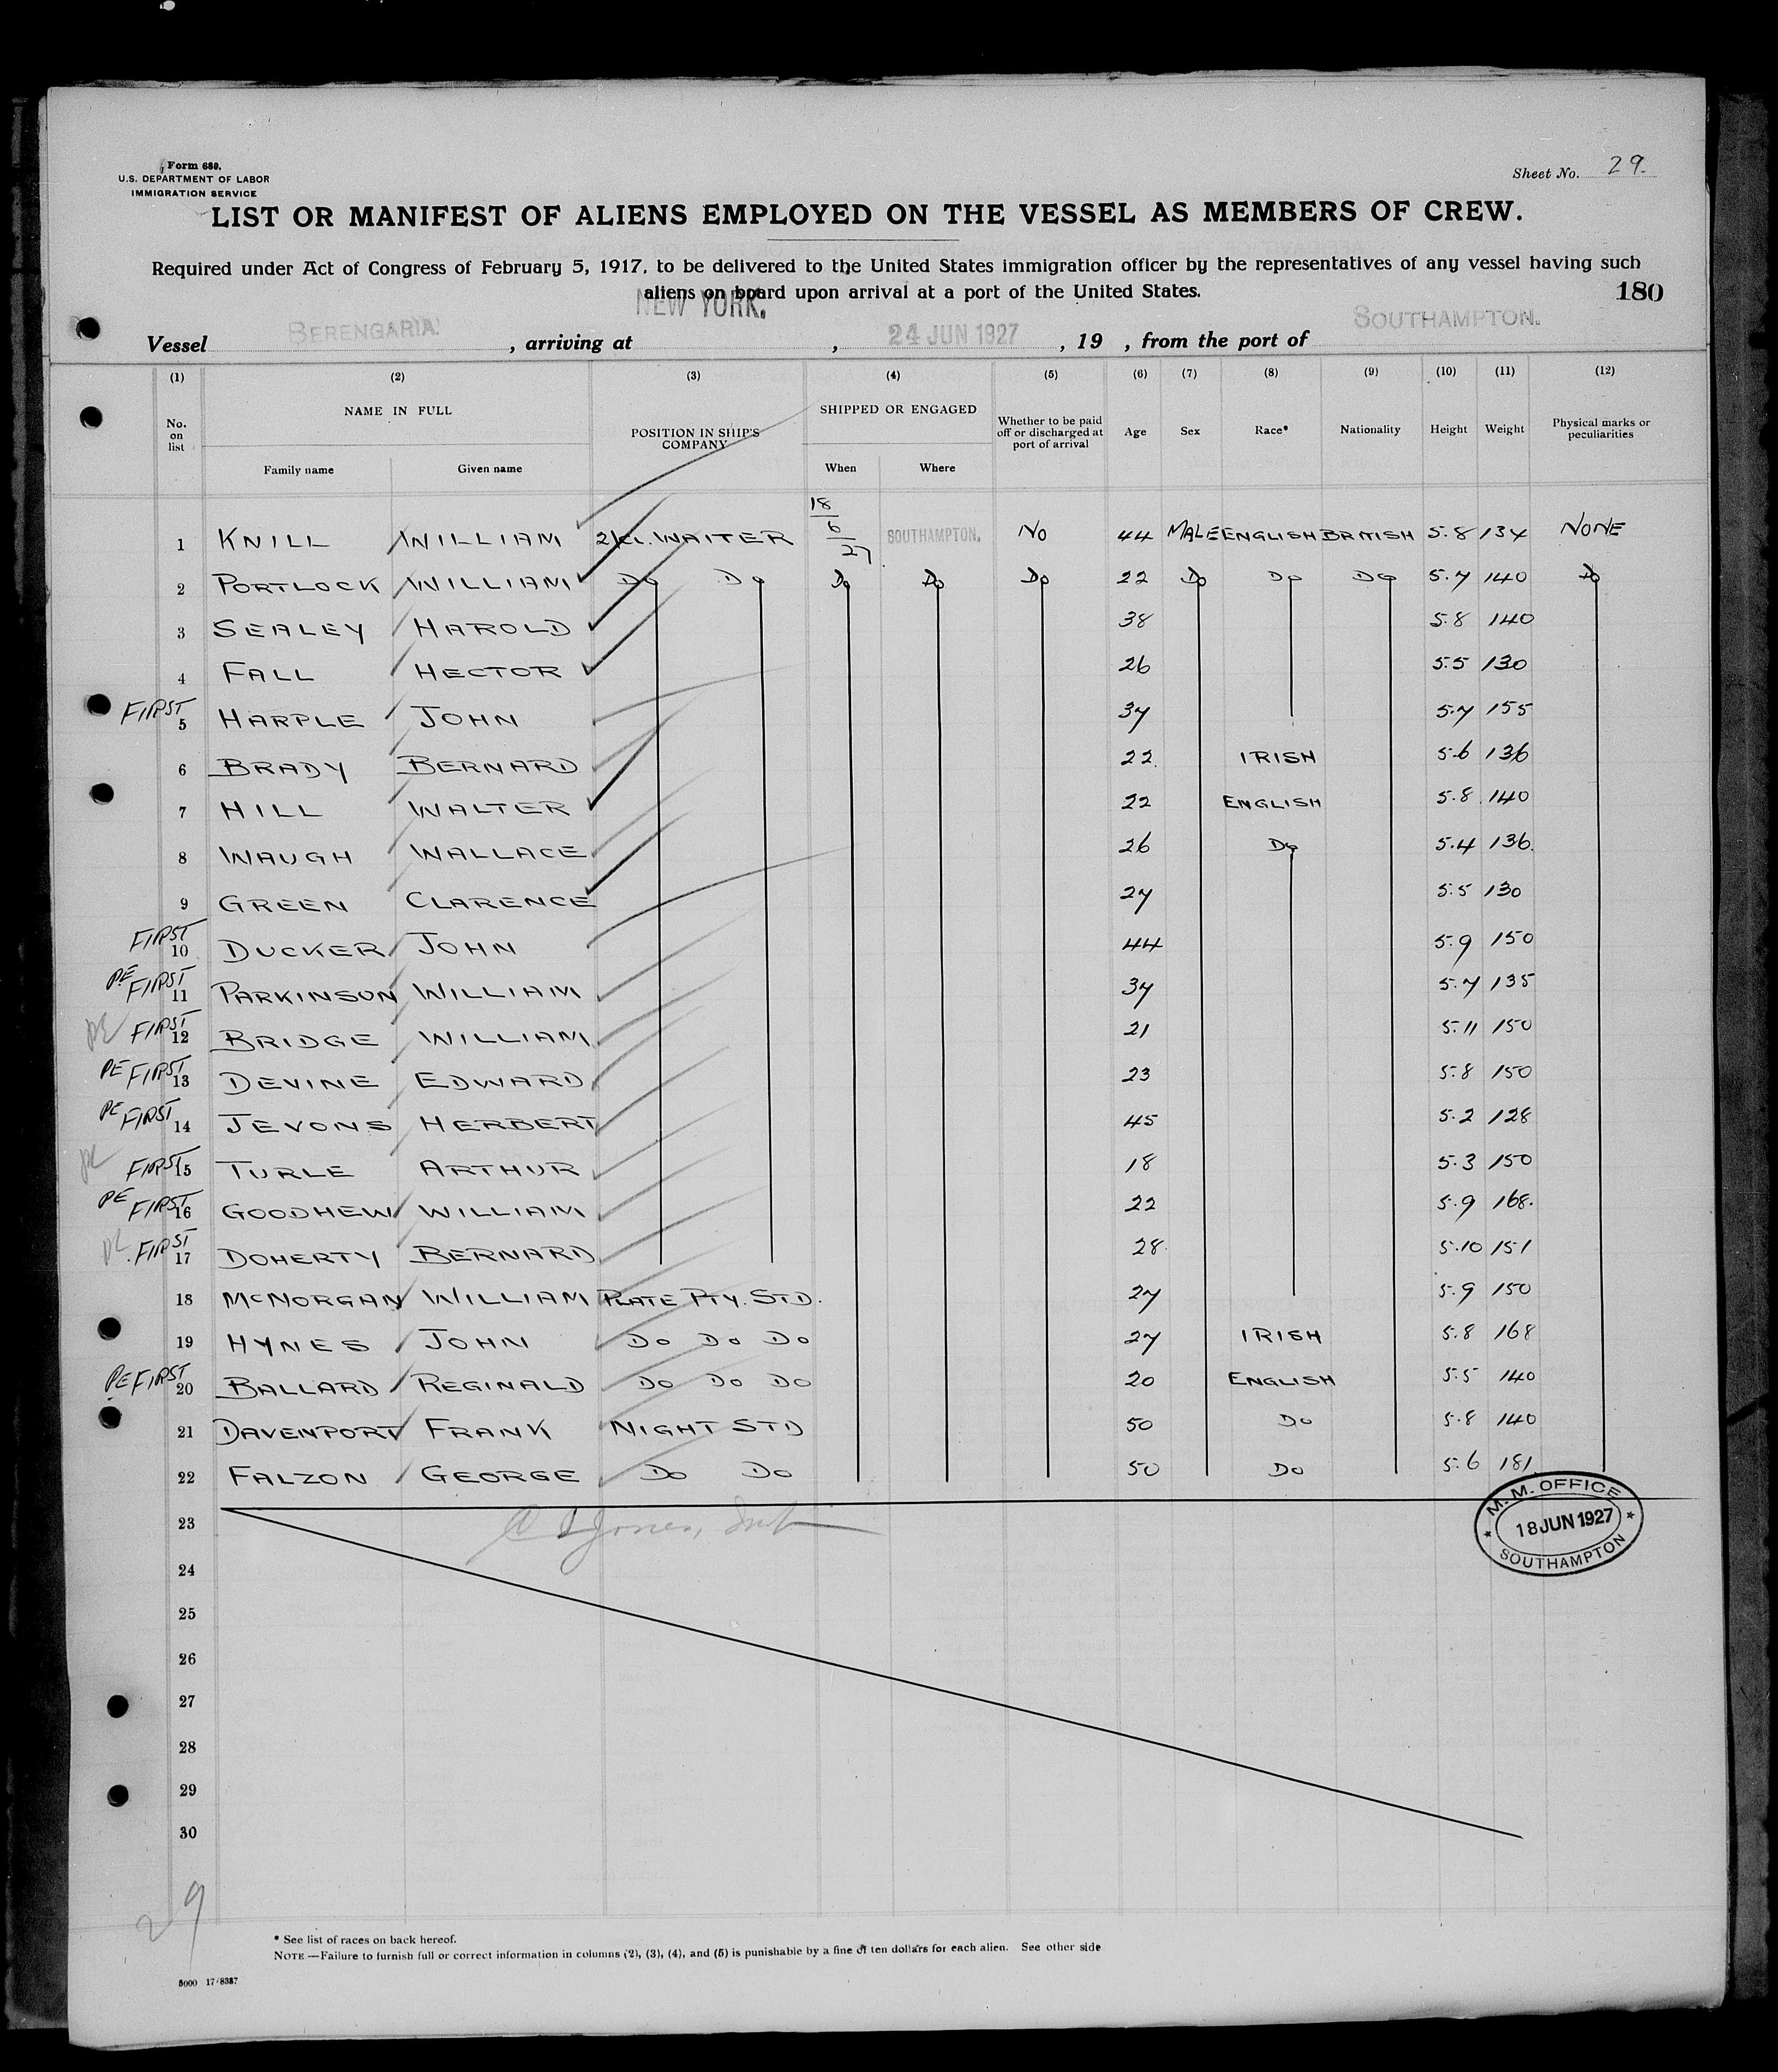 Form 680.
U.S. DEPARTMENT OF LABOR
IMMIGRATION SERVICE
Sheet No. 29.
LIST OR MANIFEST OF ALIENS EMPLOYED ON THE VESSEL AS MEMBERS OF CREW.
Required under Act of Congress of February 5, 1917, to be delivered to the United States immigration officer by the representatives of any vessel having such
aliens on board upon arrival at a port of the United States.
180
Vessel BERENGARIA. , arriving at NEW YORK. , 24 JUN 1927 , 19 , from the port of SOUTHAMPTON.
(1) (2) (3) (4) (5) (6) (7) (8) (9) (10) (11) (12)
No. on list NAME IN FULL Family name Given name POSITION IN SHIP'S COMPANY SHIPPED OR ENGAGED When Where Whether to be paid off or discharged at port of arrival Age Sex Race* Nationality Height Weight Physical marks or peculiarities
1 KNILL WILLIAM 2/CL. WAITER 18/6/27 SOUTHAMPTON. NO 44 MALE ENGLISH BRITISH 5.8 134 NONE
2 PORTLOCK WILLIAM DO DO DO DO DO 22 DO DO DO 5.7 140 DO
3 SEALEY HAROLD 38 5.8 140
4 FALL HECTOR 26 5.5 130
FIRST 5 HARPLE JOHN 37 5.7 155
6 BRADY BERNARD 22. IRISH 5.6 136
7 HILL WALTER 22 ENGLISH 5.8 140
8 WAUGH WALLACE 26 DO 5.4 136.
9 GREEN CLARENCE 27 5.5 130
FIRST 10 DUCKER JOHN 44 5.9 150
PE FIRST 11 PARKINSON WILLIAM 37 5.7 135
PE FIRST 12 BRIDGE WILLIAM 21 5.11 150
PE FIRST 13 DEVINE EDWARD 23 5.8 150
PE FIRST 14 JEVONS HERBERT 45 5.2 128
PE FIRST 15 TURLE ARTHUR 18 5.3 150
PE FIRST 16 GOODHEW WILLIAM 22 5.9 168.
PE FIRST 17 DOHERTY BERNARD 28. 5.10 151
18 McNORGAN WILLIAM PLATE PTY. STD. 27 5.9 150
19 HYNES JOHN DO DO DO 27 IRISH 5.8 168
PE FIRST 20 BALLARD REGINALD DO DO DO 20 ENGLISH 5.5 140
21 DAVENPORT FRANK NIGHT STD 50 DO 5.8 140
22 FALZON GEORGE DO DO 50 DO 5.6 181
23
24
25
26
27
28
29
30
M. M. OFFICE
18 JUN 1927
SOUTHAMPTON
29
* See list of races on back hereof.
NOTE.—Failure to furnish full or correct information in columns (2), (3), (4), and (5) is punishable by a fine of ten dollars for each alien. See other side
5000 17/8387